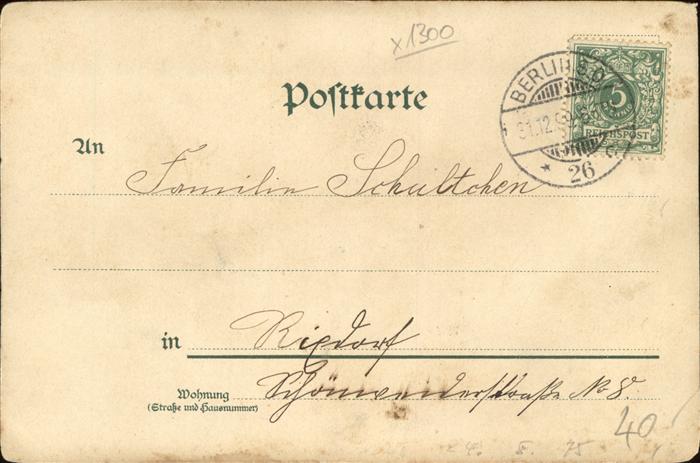 x1300
Postkarte
BERLIN S.O.
31.12.
* 26
5
REICHSPOST
An
Familie Schultchen
in Rixdorf
Wohnung
(Straße und Hausnummer)
Schönweiderstraße No 8.
40